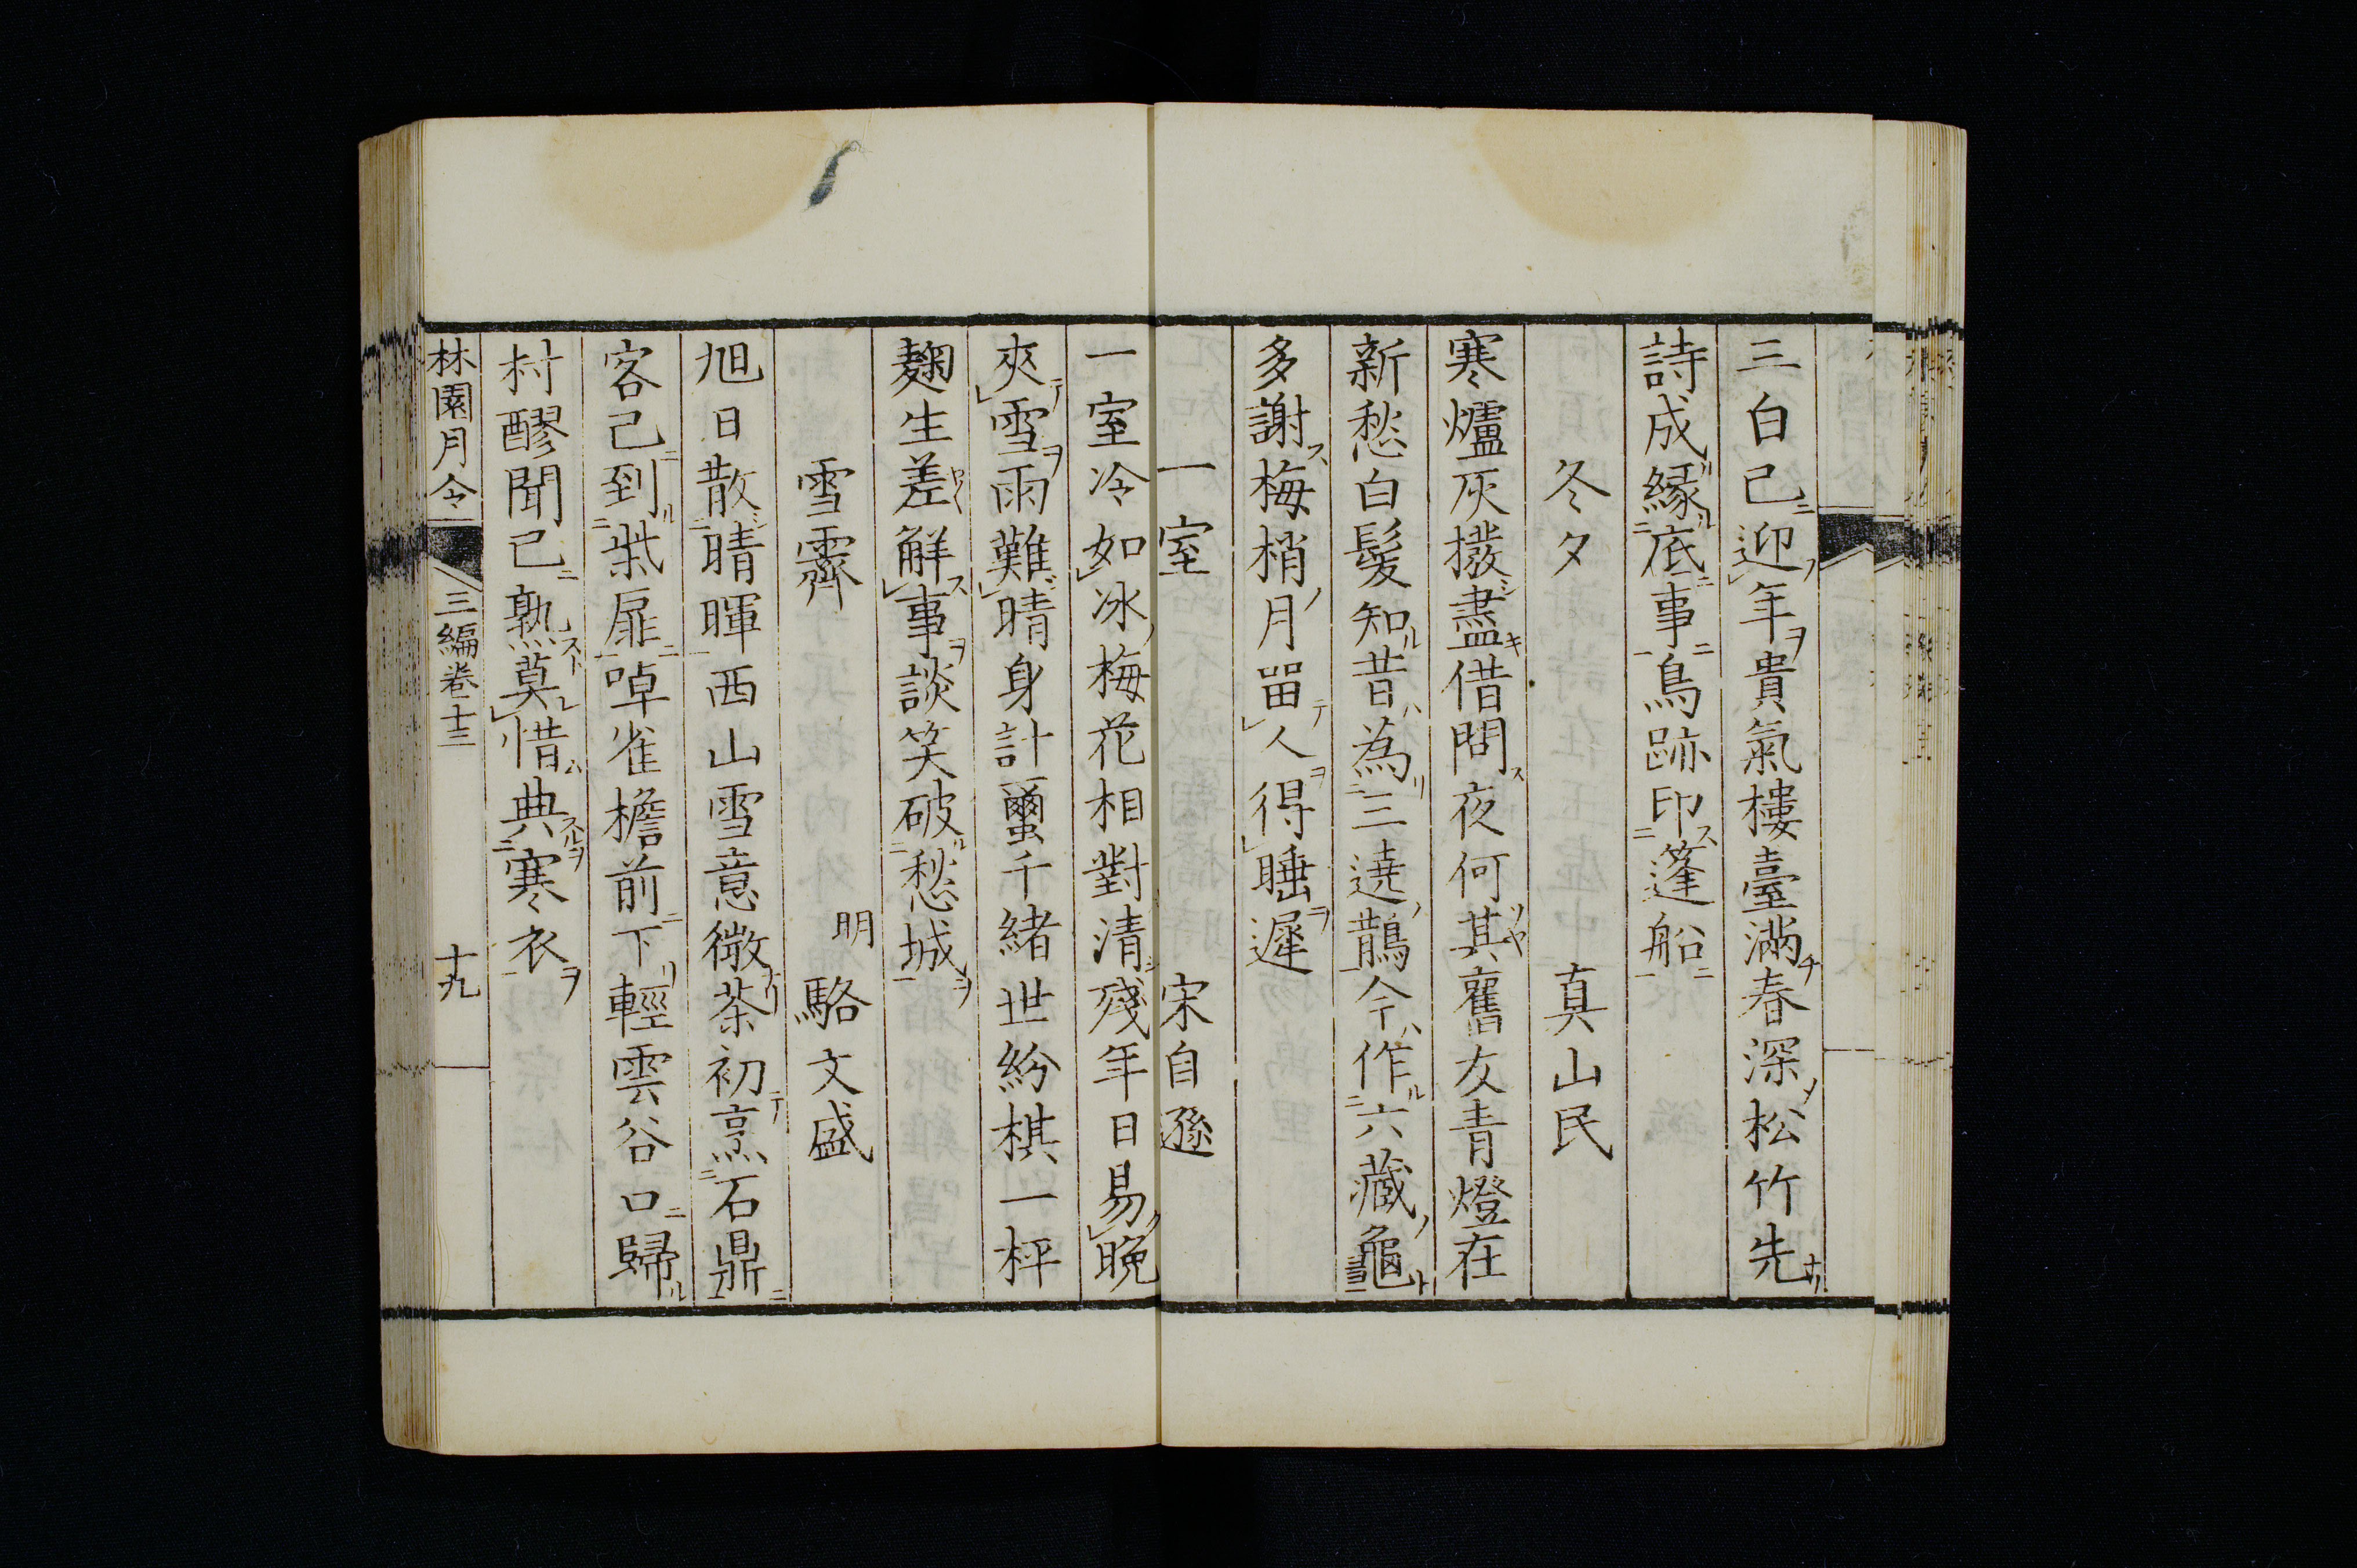 三白已迎年貴氣樓臺滿春深松竹先
詩成緣底事鳥跡印篷船
冬夕 真山民
寒爐灰撥盡借問夜何其舊友青燈在
新愁白髮知昔為三遶鵲今作六藏龜
多謝梅梢月畱人得睡遲
一室 宋自遜
一室冷如冰梅花相對清殘年日易晚
夾雪雨難晴身計蠒千緒世紛棋一枰
麹生差解事談笑破愁城
雪霽 明 駱文盛
旭日散晴暉西山雪意微茶初烹石鼎
客已到柴扉啅雀檐前下輕雲谷口歸
村醪聞已熟莫惜典寒衣
林園月令 三編卷十三 十九